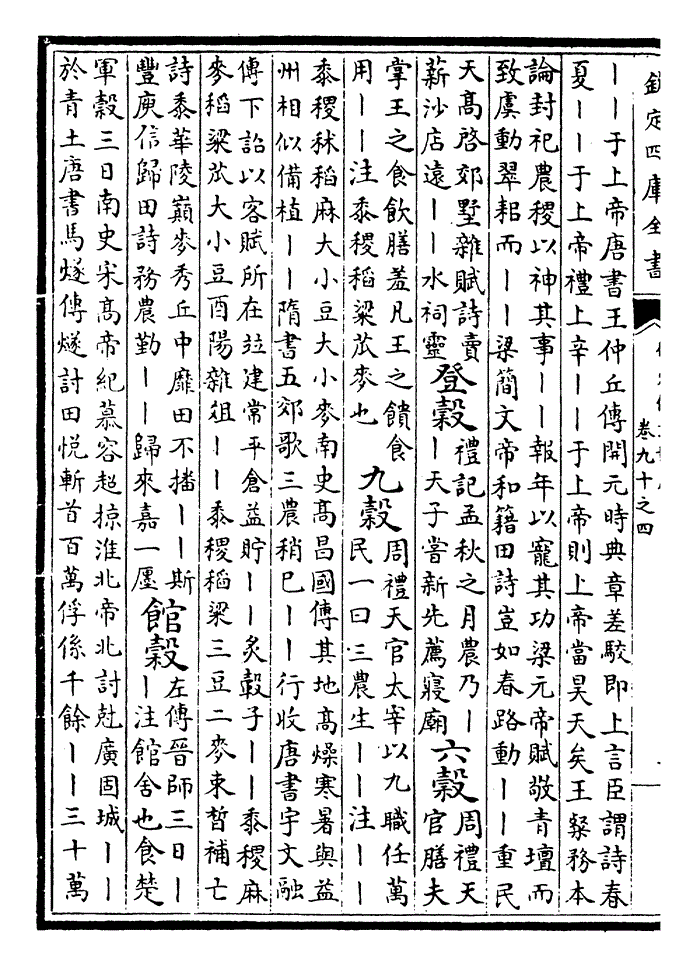 欽定四庫全書
卷九十之四
丨丨于上帝唐書王仲丘傳開元時典章差駮即上言臣謂詩春
夏丨丨于上帝禮上辛丨丨于上帝則上帝當昊天矣王粲務本
論封祀農稷以神其事丨丨報年以寵其功梁元帝賦敬青壇而
致虞動翠耜而丨丨梁簡文帝和籍田詩豈如春路動丨丨重民
天高啓郊墅雜賦詩賣
薪沙店遠丨丨水祠靈
登穀
禮記孟秋之月農乃丨
丨天子嘗新先薦寢廟
六穀
周禮天
官膳夫
掌王之食飲膳羞凡王之饋食
用丨丨注黍稷稻粱苽麥也
九穀
周禮天官太宰以九職任萬
民一曰三農生丨丨注丨丨
黍稷秫稻麻大小豆大小麥南史高昌國傳其地高燥寒暑與益
州相似備植丨丨隋書五郊歌三農稍已丨丨行收唐書宇文融
傳下詔以客賦所在竝建常平倉益貯丨丨炙轂子丨丨黍稷麻
麥稻粱苽大小豆酉陽雜俎丨丨黍稷稻粱三豆二麥束皙補亡
詩黍華陵巔麥秀丘中靡田不播丨丨斯
豐庾信歸田詩務農勤丨丨歸來嘉一廛
館穀
左傳晉師三日丨
丨注館舍也食楚
軍穀三日南史宋高帝紀慕容超掠淮北帝北討尅廣固城丨丨
於青土唐書馬燧傳燧討田悅斬首百萬俘係千餘丨丨三十萬